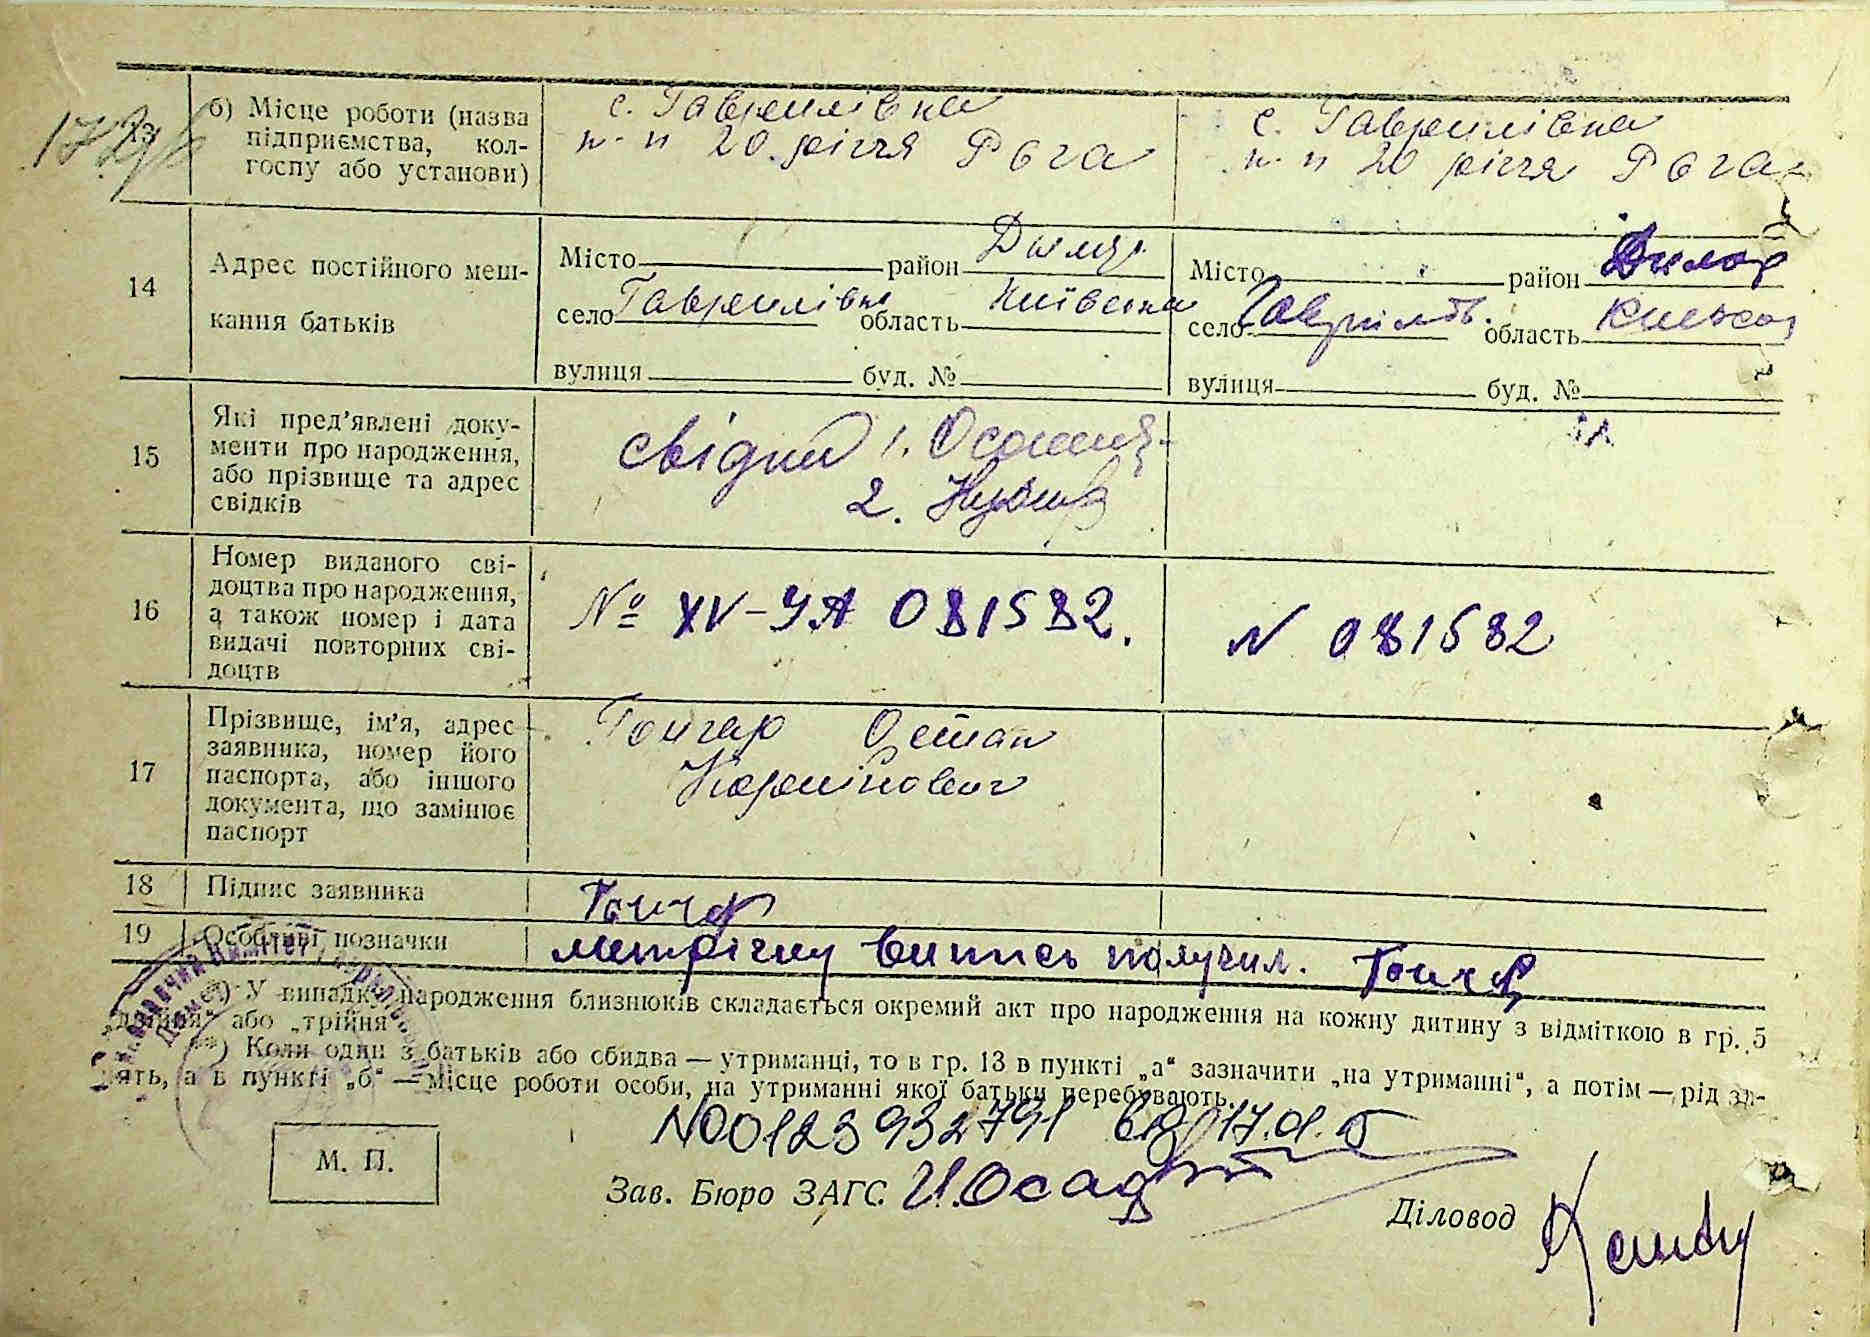 13
б) Місце роботи (назва
підприємства, кол-
госпу або установи)
с. Гаврилівка
к-п 20 річчя
с. Гаврилівка
к-п 20 річчя
14
Адрес постійного меш-
кання батьків
Місто район Димер
село Гаврилівка область Київська
вулиця буд. №
Місто район
село область
вулиця буд. №
15
Які пред'явлені доку-
менти про народження,
або прізвище та адрес
свідків
свідки 1.
2.
16
Номер виданого сві-
доцтва про народження,
а також номер і дата
видачі повторних сві-
доцтв
№ XV-УА 081582.
N 081582
17
Прізвище, ім'я, адрес
заявника, номер його
паспорта, або іншого
документа, що замінює
паспорт
Гончар Остап
18
Підпис заявника
Гончар
19
Особливі позначки
метрічну випись получил. Гончар
*) У випадку народження близнюків складається окремий акт про народження на кожну дитину з відміткою в гр. 5
„двійня“ або „трійня“
**) Коли один з батьків або обидва — утриманці, то в гр. 13 в пункті „а“ зазначити „на утриманні“, а потім — рід за-
нять, а в пункті „б“ — місце роботи особи, на утриманні якої батьки перебувають.
N00123932791
М. П.
Зав. Бюро ЗАГС И.Осад
Діловод